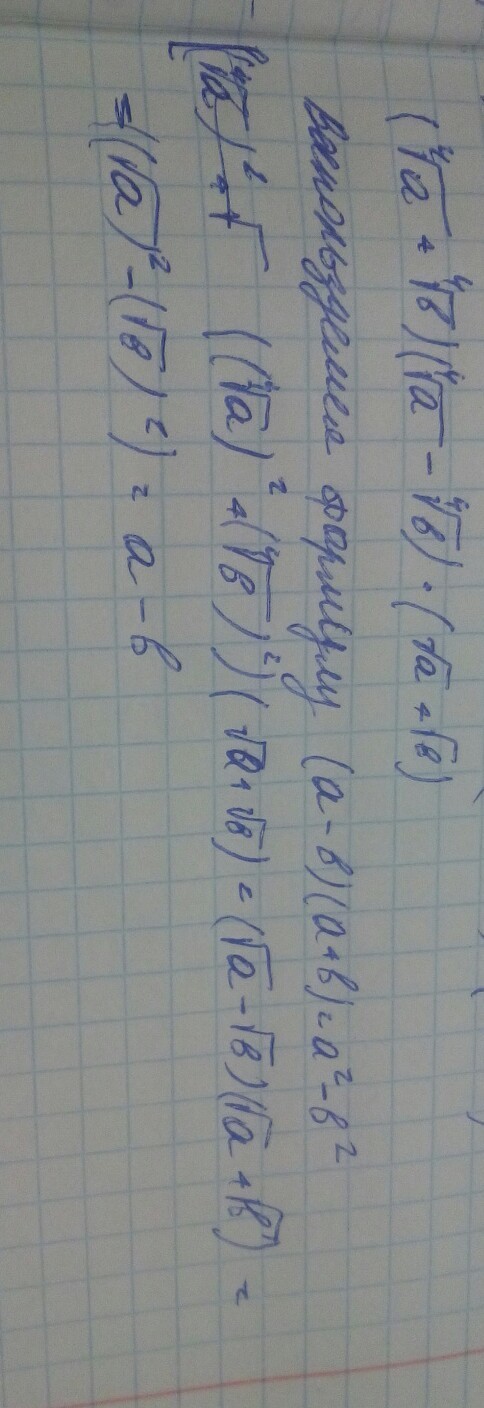 (∜a + ∜b)(∜a - ∜b) · (√a + √b)
Воспользуемся формулу (a - b)(a + b) = a² - b²
((∜a)² + (∜b)²)(√a + √b) = (√a - √b)(√a + √b) =
= ((√a)² - (√b)²) = a - b